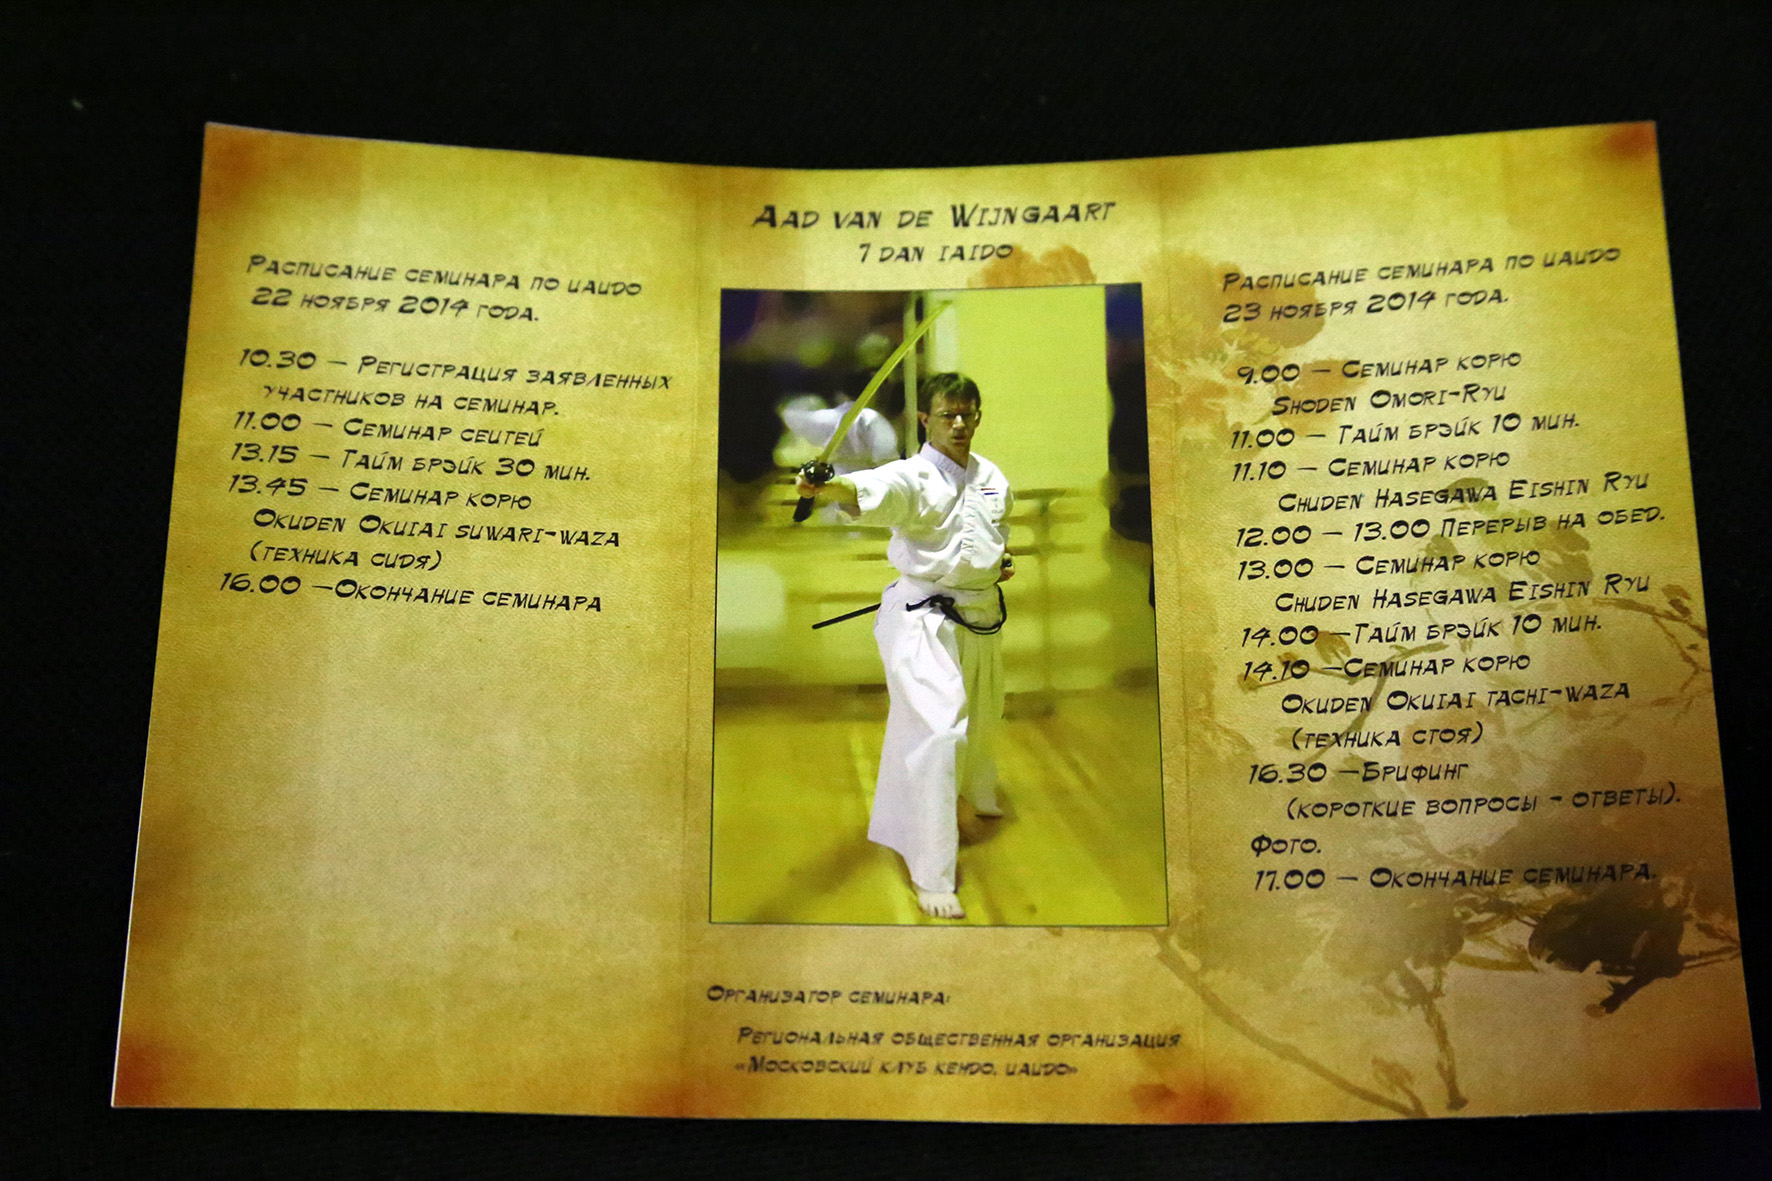 Расписание семинара по иаидо
22 ноября 2014 года.
10.30 – Регистрация заявленных
участников на семинар.
11.00 – Семинар сеитей
13.15 – Тайм брэйк 30 мин.
13.45 – Семинар корю
Okuden Okuiai suwari-waza
(техника сидя)
16.00 –Окончание семинара
Aad van de Wijngaart
7 dan iaido
Организатор семинара:
Региональная общественная организация
«Московский клуб кендо, иаидо»
Расписание семинара по иаидо
23 ноября 2014 года.
9.00 – Семинар корю
Shoden Omori-Ryu
11.00 – Тайм брэйк 10 мин.
11.10 – Семинар корю
Chuden Hasegawa Eishin Ryu
12.00 – 13.00 Перерыв на обед.
13.00 – Семинар корю
Chuden Hasegawa Eishin Ryu
14.00 –Тайм брэйк 10 мин.
14.10 –Семинар корю
Okuden Okuiai tachi-waza
(техника стоя)
16.30 –Брифинг
(короткие вопросы - ответы).
Фото.
17.00 – Окончание семинара.